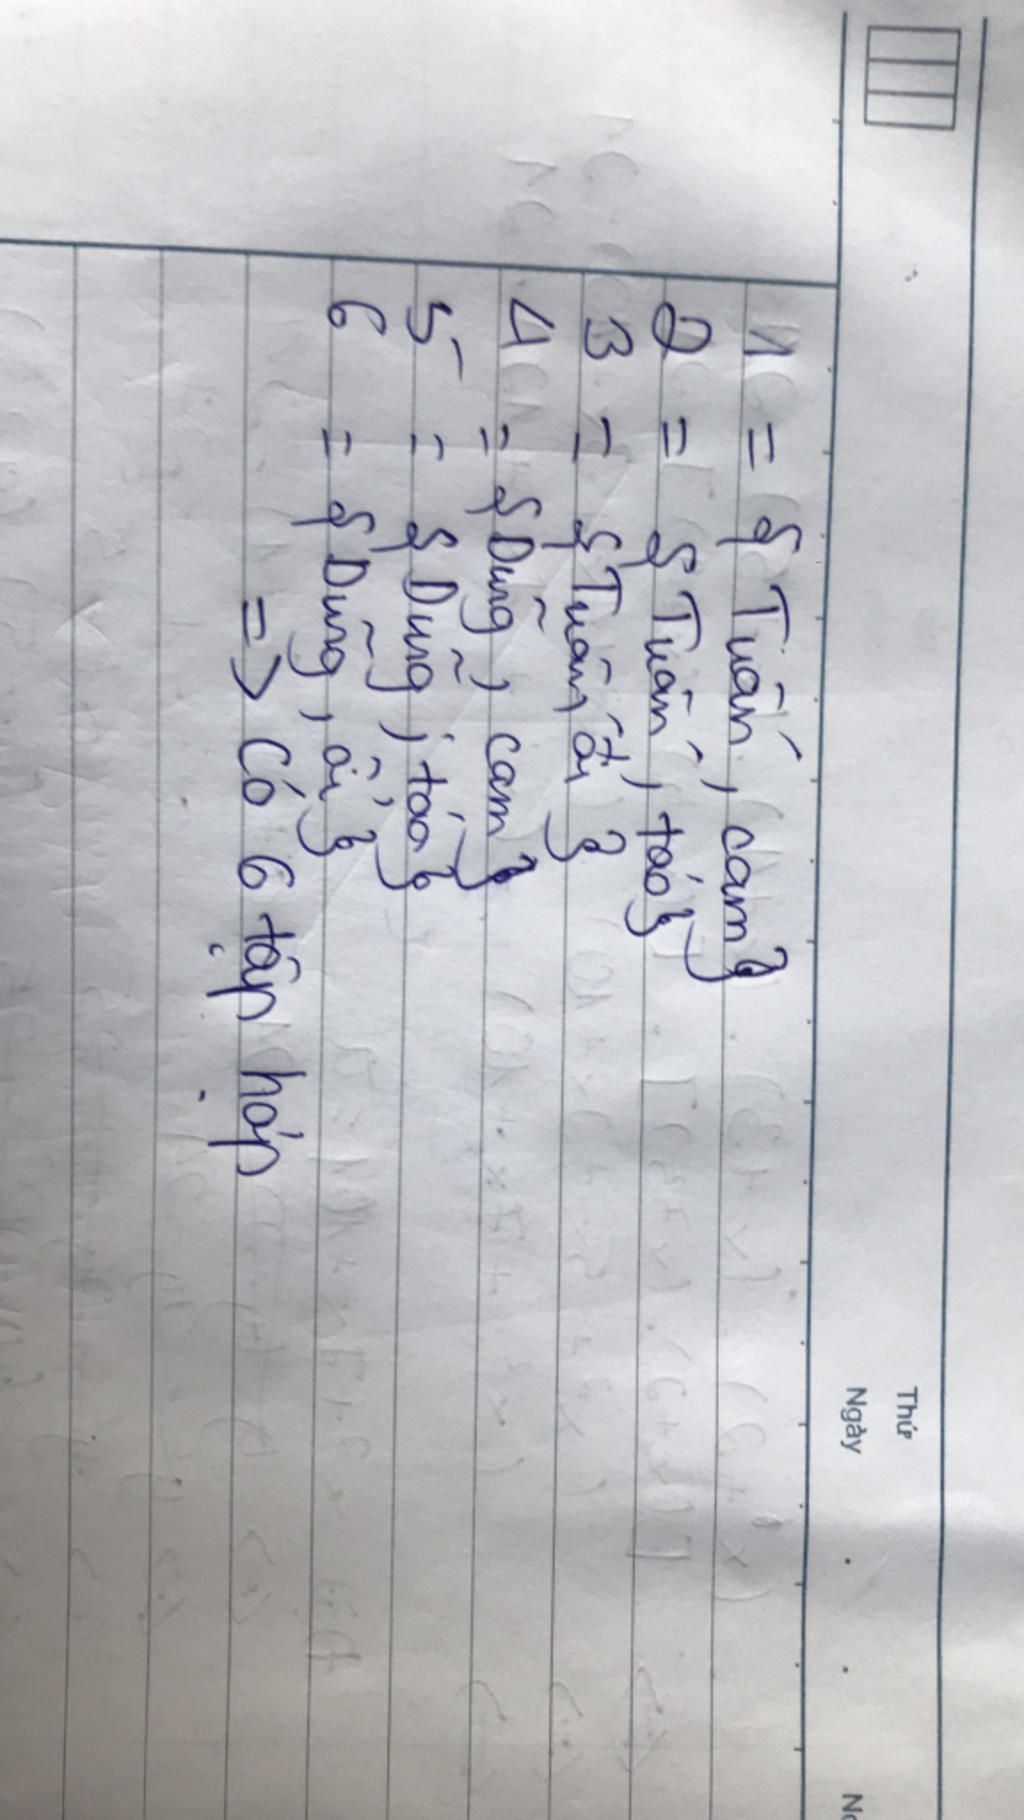 Thứ
Ngày
1 = { Tuấn, cam}
2 = { Tuấn, táo}
3 = { Tuấn, ổi }
4 = { Dũng, cam}
5 = { Dũng, táo}
6 = { Dũng, ổi}
=> Có 6 tập hợp